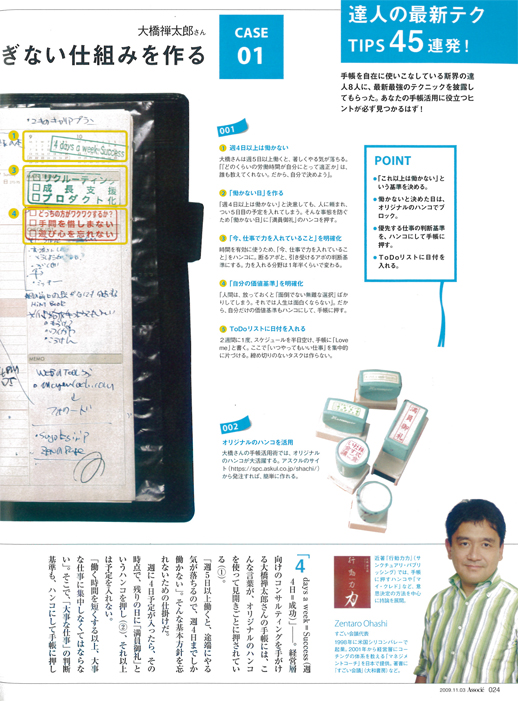 大橋禅太郎さん
ぎない仕組みを作る
CASE
01
達人の最新テク
TIPS 45連発！
手帳を自在に使いこなしている斯界の達
人8人に、最新最強のテクニックを披露し
てもらった。あなたの手帳活用に役立つヒ
ントが必ず見つかるはず！
001
1 週4日以上は働かない
大橋さんは週5日以上働くと、著しくやる気が落ちる。
「『どのくらいの労働時間が自分にとって適正か』は、
誰も教えてくれない。だから、自分で決めよう」。
2 「働かない日」を作る
「週4日以上は働かない」と決意しても、人に頼まれ、
つい5日目の予定を入れてしまう。そんな事態を防ぐ
ため「働かない日」に「満員御礼」のハンコを押す。
3 「今、仕事で力を入れていること」を明確化
時間を有効に使うため、「今、仕事で力を入れているこ
と」をハンコに。断るアポと、引き受けるアポの判断基
準にする。力を入れる分野は1年半くらいで変わる。
4 「自分の価値基準」を明確化
「人間は、放っておくと“面倒でない無難な選択”ばか
りしてしまう。それでは人生は面白くならない」。だか
ら、自分だけの価値基準もハンコにして、手帳に押す。
5 ToDoリストに日付を入れる
2週間に1度、スケジュールを半日空け、手帳に「Love
me」と書く。ここで「いつやってもいい仕事」を集中的
に片づける。締め切りのないタスクは作らない。
POINT
●「これ以上は働かない」と
いう基準を決める。
●働かないと決めた日は、
オリジナルのハンコでブ
ロック。
●優先する仕事の判断基準
を、ハンコにして手帳に
押す。
●ToDoリストに日付を
入れる。
1
4 days a week=Success
3
□リクルーティング
□成長支援
□プロダクト化
4
□どっちの方がワクワクするか？
□手間を惜しまない
□遊び心を忘れない
MEMO
002
オリジナルのハンコを活用
大橋さんの手帳活用術では、オリジナル
のハンコが大活躍する。アスクルのサイ
ト（https://spc.askul.co.jp/shachi/）
から発注すれば、簡単に作れる。
満員御礼
「4 days a week＝Success（週
4日＝成功）」――。経営層
向けのコンサルティングを手がけ
る大橋禅太郎さんの手帳には、こ
んな言葉が、オリジナルのハンコ
を使って見開きごとに押されてい
る（①）。
「週5日以上働くと、途端にやる
気が落ちるので、週4日までしか
働かない」。そんな基本方針を忘
れないための仕掛けだ。
週に4日予定が入ったら、その
時点で、残りの日に「満員御礼」と
いうハンコを押し（②）、それ以上
は予定を入れない。
「働く時間を短くする以上、大事
な仕事に集中しなくてはならな
い」。そこで、「大事な仕事」の判断
基準も、ハンコにして手帳に押し
行動力
近著『行動力力』（サ
ンクチュアリ・パブリ
ッシング）では、手帳
に押すハンコや「マ
イ・クレド」など、意
思決定の方法を中心
に持論を展開。
Zentaro Ohashi
すごい会議代表
1998年に米国シリコンバレーで
起業。2001年から経営層にコー
チングの体系を教える「マネジメ
ントコーチ」を日本で提供。著書に
『すごい会議』（大和書房）など。
2009.11.03 Associé 024